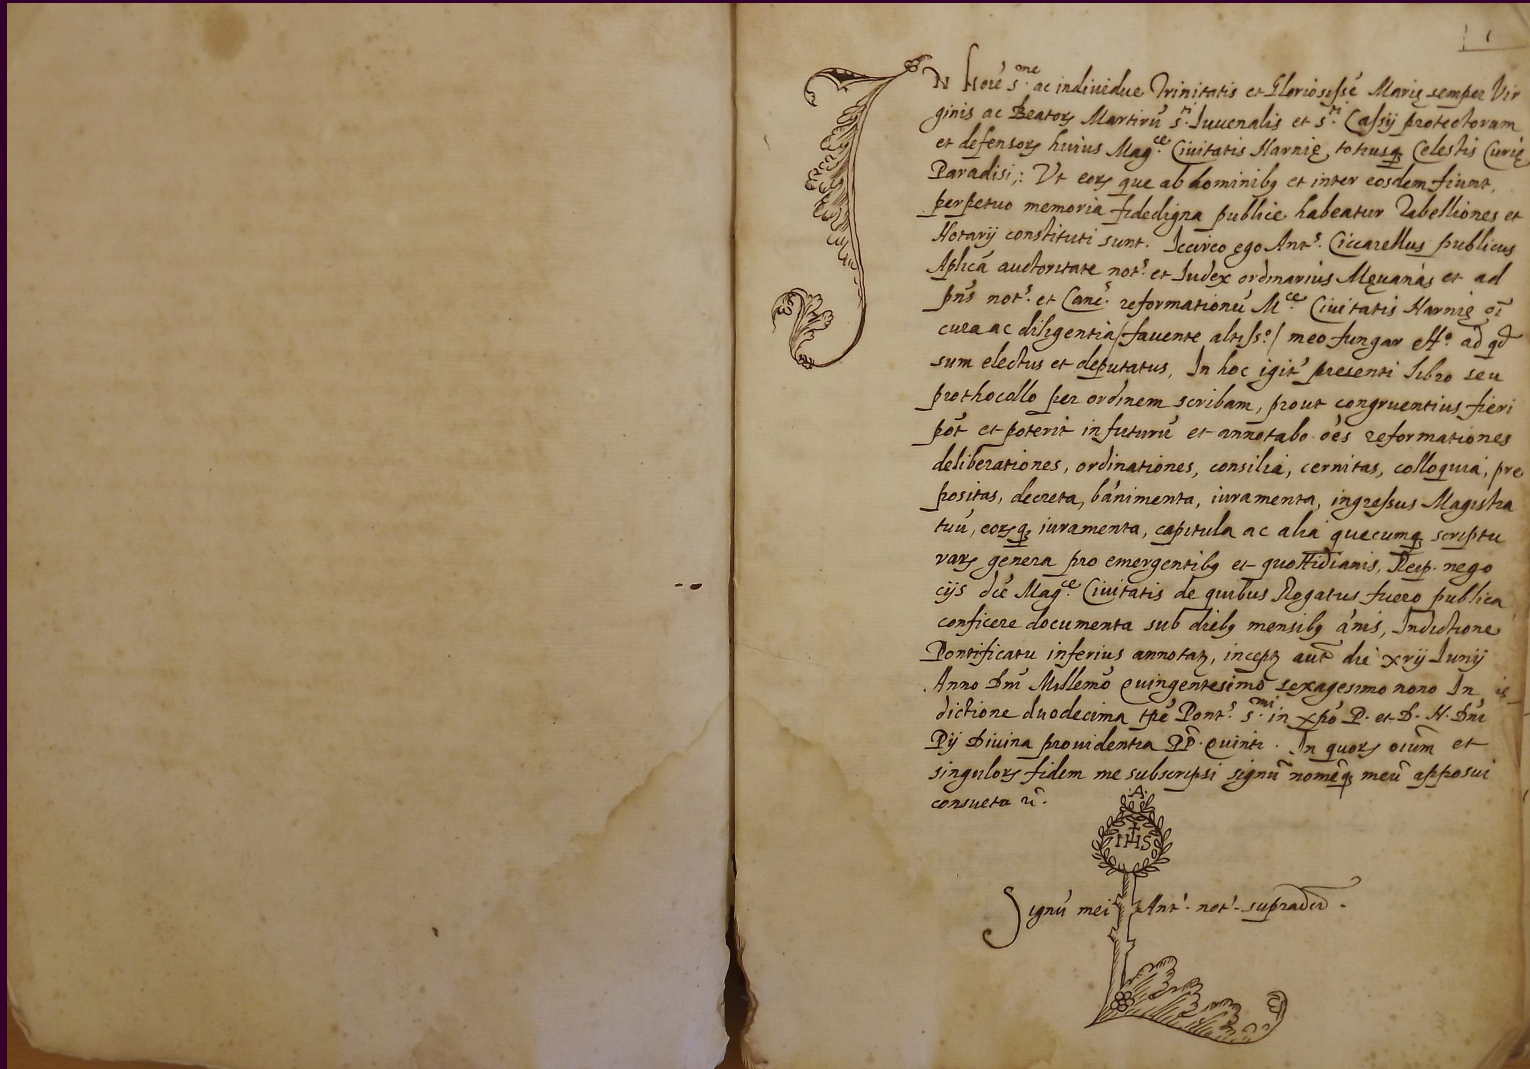 IN Noīe s.me ac indiuidue Trinitatis et Gloriosissē Marię semper Vir
ginis ac Beatorꝝ Martirū s.ti Iuuenalis et s.ti Cassij protectorum
et defensorꝝ huius Mag.ce Ciuitatis Narnię, totiusqꝫ Celestis Curię
Paradisi,: Vt eorꝝ que ab dominibꝫ et inter eosdem fiunt,
perpetuo memoria fidedigna publice habeatur Tabelliones et
Notarij constituti sunt. Iccirco ego Ant.s Ciccarellus publicus
Aplicā auctoritate not.s et Iudex ordinarius Meuanās et ad
pn̄s not.s et Canc.s reformationū M.ce Ciuitatis Narnię oī
cura ac diligentia /fauente altiss.o/ meo fungar off.o ad qd̄
sum electus et deputatus, In hoc igit presenti libro seu
prothocollo per ordinem scribam, prout congruentius fieri
pōt et poterit in futurū et annotabo oēs reformationes
deliberationes, ordinationes, consilia, cernitas, colloquia, pre
positas, decreta, bānimenta, iuramenta, ingressus Magistra
tuū, eorꝝqꝫ iuramenta, capitula ac alia quecumqꝫ scriptu
rarꝝ genera pro emergentibꝫ et quottidianis, Reip. nego
cijs dc̄e Mag.ce Ciuitatis de quibus Rogatus fuero publica
conficere documenta sub diebꝫ mensibꝫ ānis, Indictione
Pontificatu inferius annotaꝫ, incepꝫ aut̄ die xvij Iunij
Anno Dnī Millemō Quingentesimō sexagesimo nono In
dictione duodecima tp̄e Pont.s s.mi in xpō P. et D. N. Dnī
Pij Diuina prouidentia PP. Quinti. In quorꝝ oium̄ et
singulorꝝ fidem me subscripsi signū nomēqꝫ meū apposui
consueta
.A.
IHS
Signū mei Ant.i not.i supradcī.